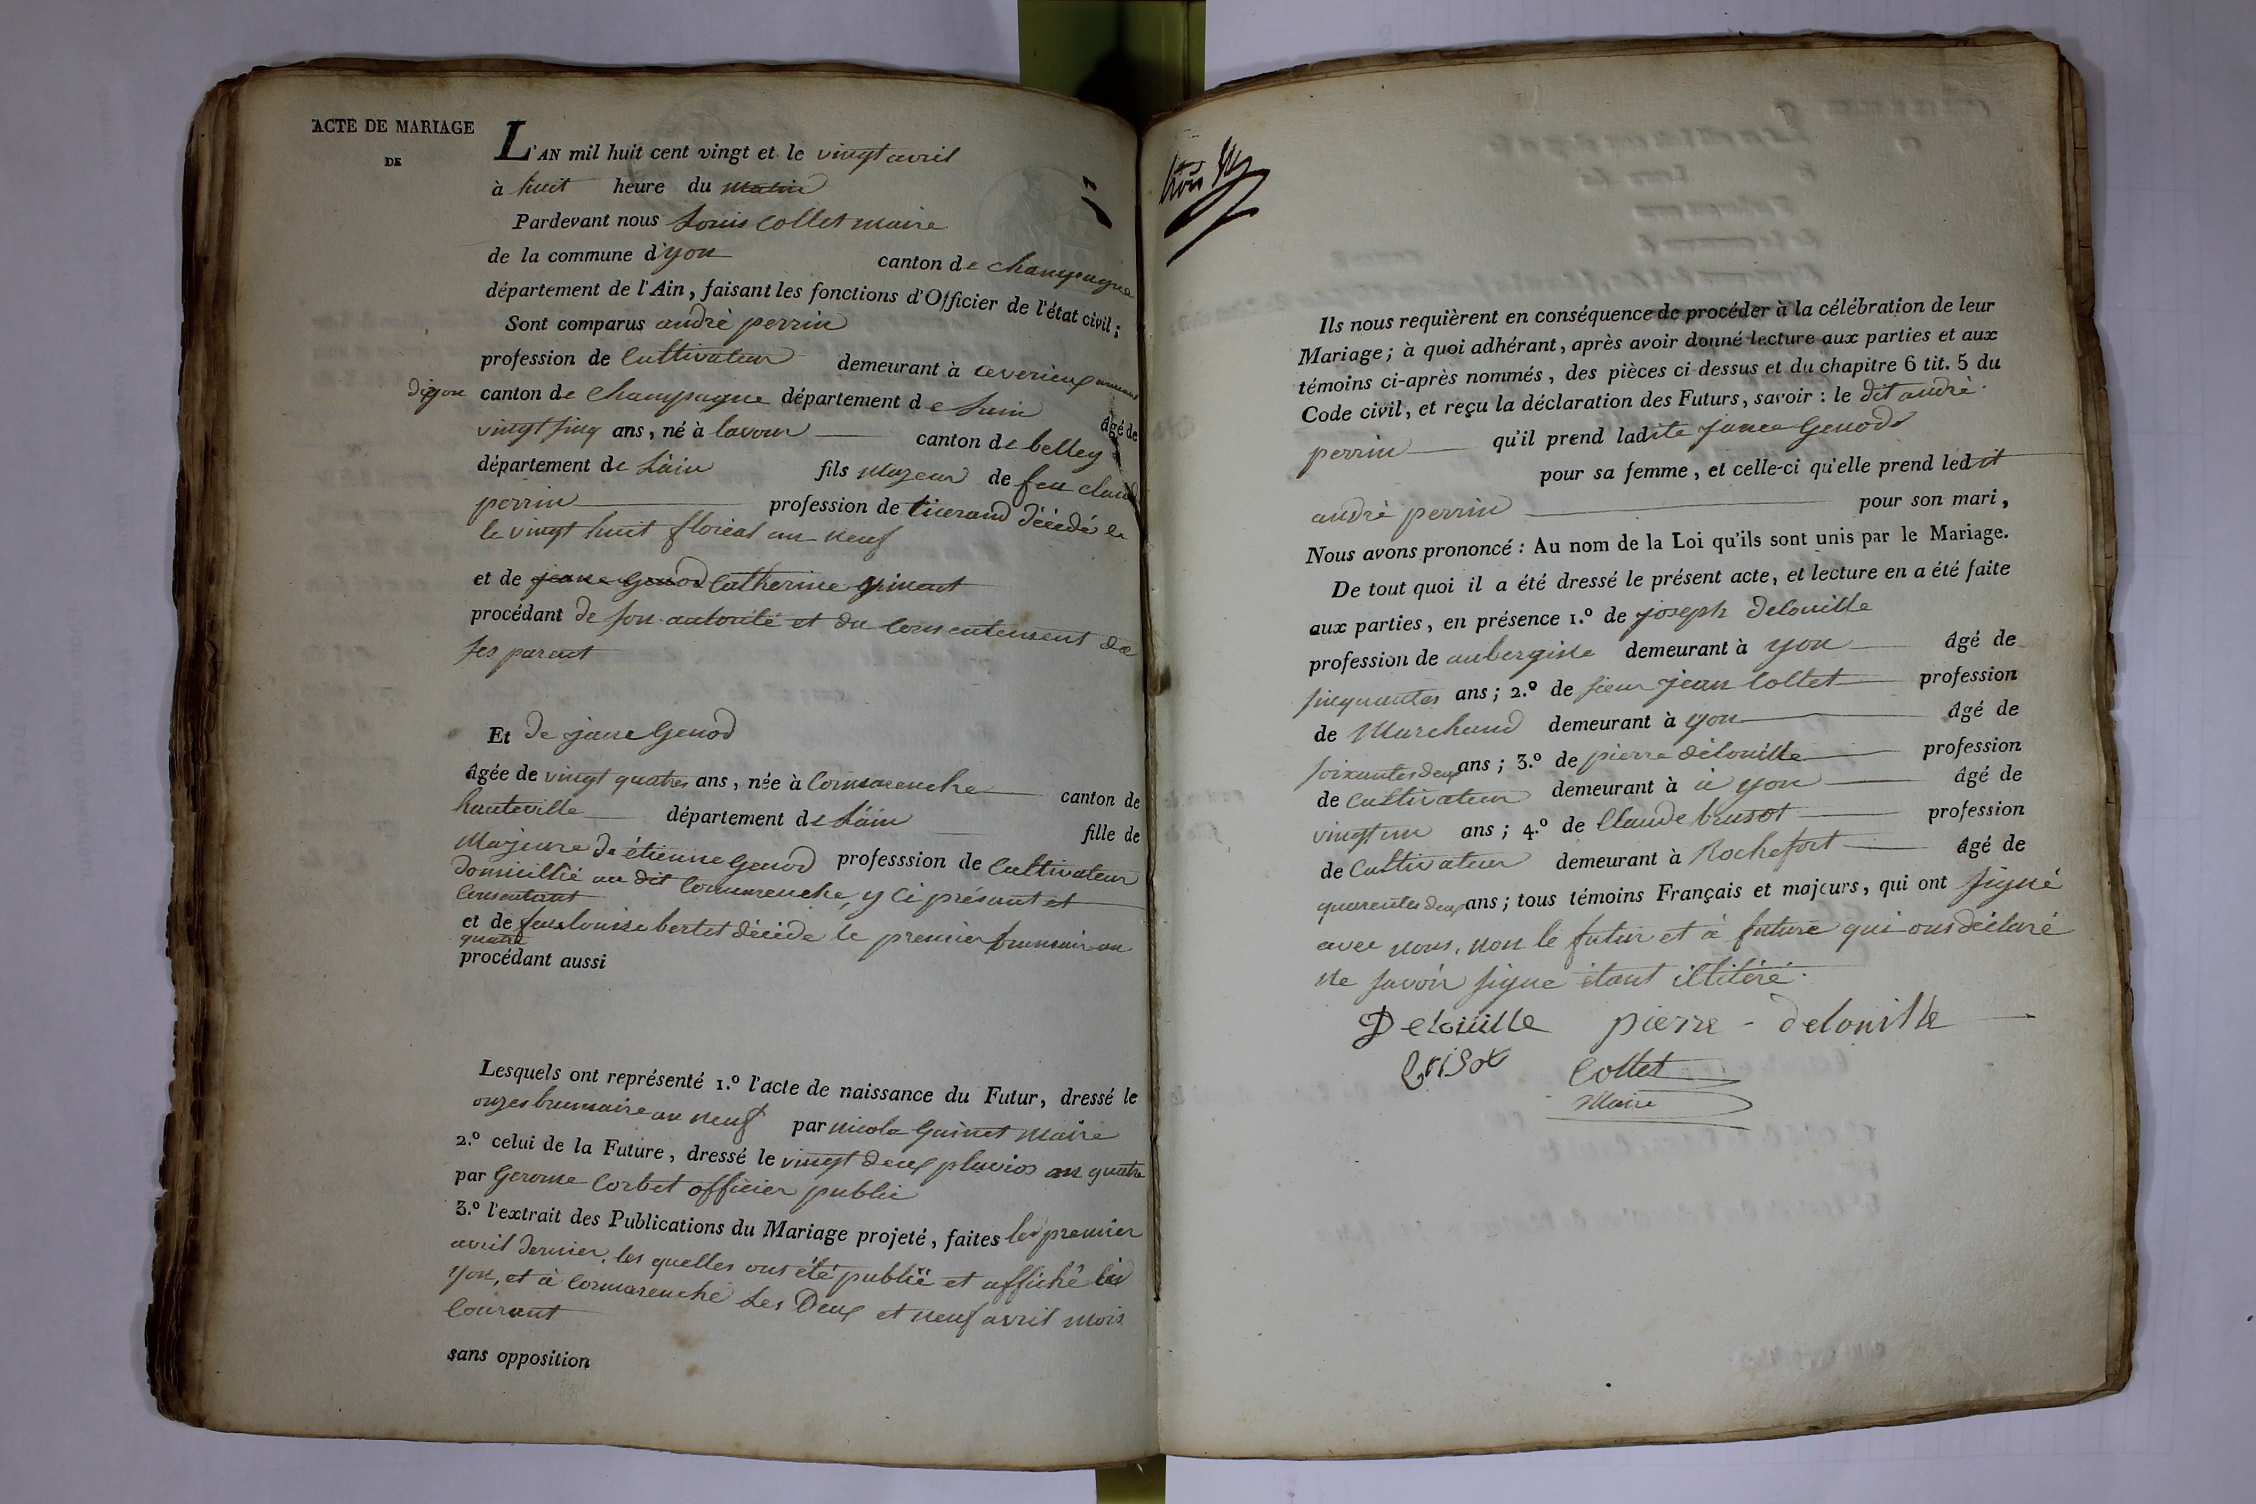 ACTE DE MARIAGE
DE
L'AN mil huit cent vingt et le vingt avril
à huit heure du matin
Pardevant nous Louis Collet maire
de la commune d'yon canton de champagne
département de l'Ain, faisant les fonctions d'Officier de l'état civil;
Sont comparus andrè perrin
profession de Cultivateur demeurant à averieux
d'iyon canton de Champagne département de Lain âgé de
vingt sinq ans, né à lavour canton de belley
département de L'ain fils majeur de feu claud
perrin profession de ticerand décédé le
le vingt huit floréal an neuf
et de jeane Genod Catherine
procédant de son autorité et du consentement de
ses parent
Et de jane Genod
âgée de vingt quatres ans, née à Cormarenche canton de
hauteville département de L'ain fille de
Majeure de étienne Genod professsion de Cultivateur
domicillié au dit Cormarenche, y ci présant et
Consentant
et de feue louise bertet décéde le premier brumair an
quatre
procédant aussi
Lesquels ont représenté 1.º l'acte de naissance du Futur, dressé le
onzes brumaire an neuf par nicola Guinet maire
2.º celui de la Future, dressé le vingt deux pluvios an quatre
par Gerome Corbet officier public
3.º l'extrait des Publications du Mariage projeté, faites les premier
avril dernier, les quelles ons été publié et affiché
yon, et à Cormarenche Les Deux et neuf avril mois
Courant
sans opposition
Ils nous requièrent en conséquence de procéder à la célébration de leur
Mariage; à quoi adhérant, après avoir donné lecture aux parties et aux
témoins ci-après nommés, des pièces ci dessus et du chapitre 6 tit. 5 du
Code civil, et reçu la déclaration des Futurs, savoir : le dit andrè
perrin qu'il prend ladite janea Genod
pour sa femme, et celle-ci qu'elle prend ledit
andrè perrin pour son mari,
Nous avons prononcé : Au nom de la Loi qu'ils sont unis par le Mariage.
De tout quoi il a été dressé le présent acte, et lecture en a été faite
aux parties, en présence 1.º de joseph Delouille
profession de aubergiste demeurant à yon âgé de
sinquantes ans; 2.º de sieur jean Collet profession
de Marchand demeurant à yon âgé de
soixantes deux ans; 3.º de pierre délouille profession
de Cultivateur demeurant à à yon âgé de
vingt un ans; 4.º de Claude brusot profession
de Cultivateur demeurant à Rochefort âgé de
quarentes deux ans; tous témoins Français et majeurs, qui ont signé
avec nous, non le futur et à future qui ons déclaré
ne savoir signe étant illitéré.
Delouille pierre - delouille
brisot Collet
Maire